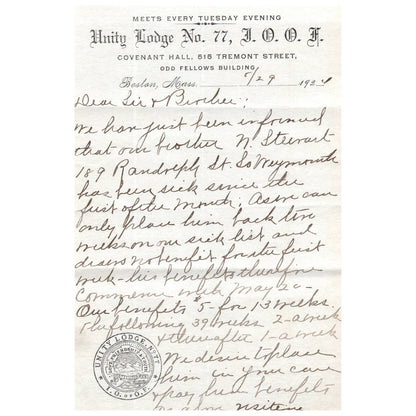 MEETS EVERY TUESDAY EVENING
Unity Lodge No. 77, I. O. O. F.
COVENANT HALL, 515 TREMONT STREET,
ODD FELLOWS BUILDING,
Boston, Mass. 5/29 1934
Dear Sir & Brother;
We have just been informed
that our brother N. Stewart
189 Randolph St So Weymouth
has been sick since the
first of the month; as we can
only place him back two
weeks on our sick list and
draws no benefit for the first
week - his benefits therefore
commence with May 20 -
Our benefits $5 - for 13 weeks
the following 39 weeks 2 - a week
& thereafter 1 - a week
We desire to place
him in your care
pay him benefits
visiting
UNITY LODGE, No. 77
I. O. of O. F.